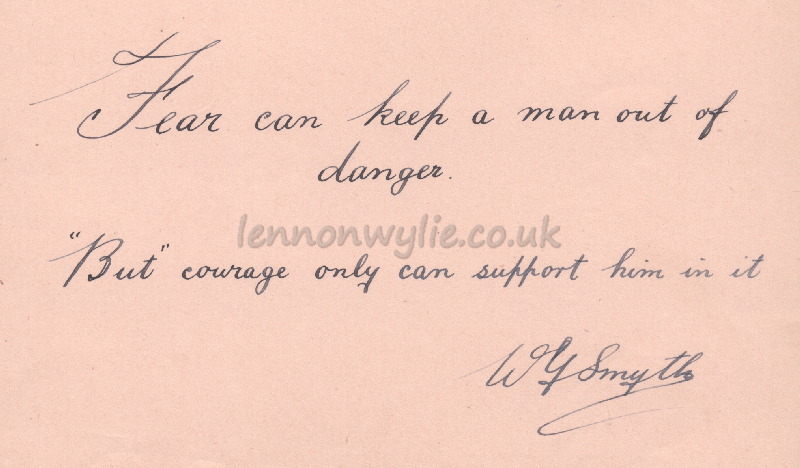 Fear can keep a man out of
danger.
lennonwylie.co.uk
"But" courage only can support him in it
W G Smyth